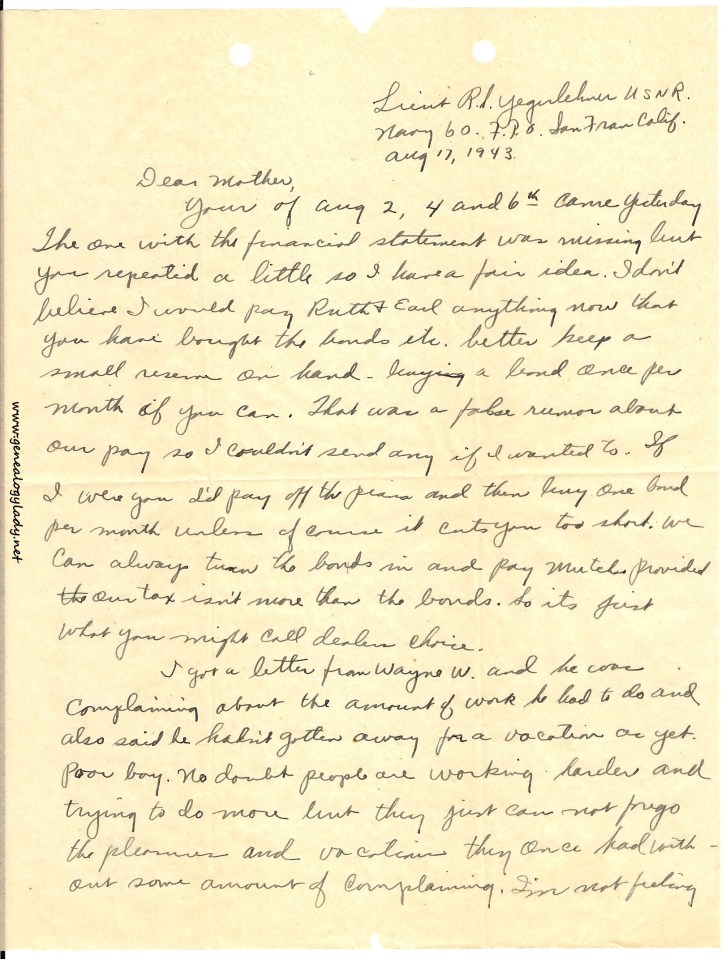 Lieut R.S. Yegerlehner USNR.
Navy 60. F.P.O. San Fran Calif.
Aug 17, 1943.
Dear Mother,
Your of Aug 2, 4 and 6th came yesterday
The one with the financial statement was missing but
you repeated a little so I have a fair idea. I don't
believe I would pay Ruth & Earl anything now that
you have bought the bonds etc. better keep a
small reserve on hand - buying a bond once per
month if you can. That was a false rumor about
our pay so I couldn't send any if I wanted to. If
I were you I'd pay off the piano and then buy one bond
per month unless of course it cuts you too short. We
can always turn the bonds in and pay Mutchs provided
the our tax isn't more than the bonds. So its just
what you might call dealers choice.
I got a letter from Wayne W. and he was
complaining about the amount of work he had to do and
also said he hadn't gotten away for a vacation as yet.
Poor boy. No doubt people are working harder and
trying to do more but they just can not forgo
the pleasures and vacations they once had with-
out some amount of complaining. I'm not feeling
www.genealogylady.net